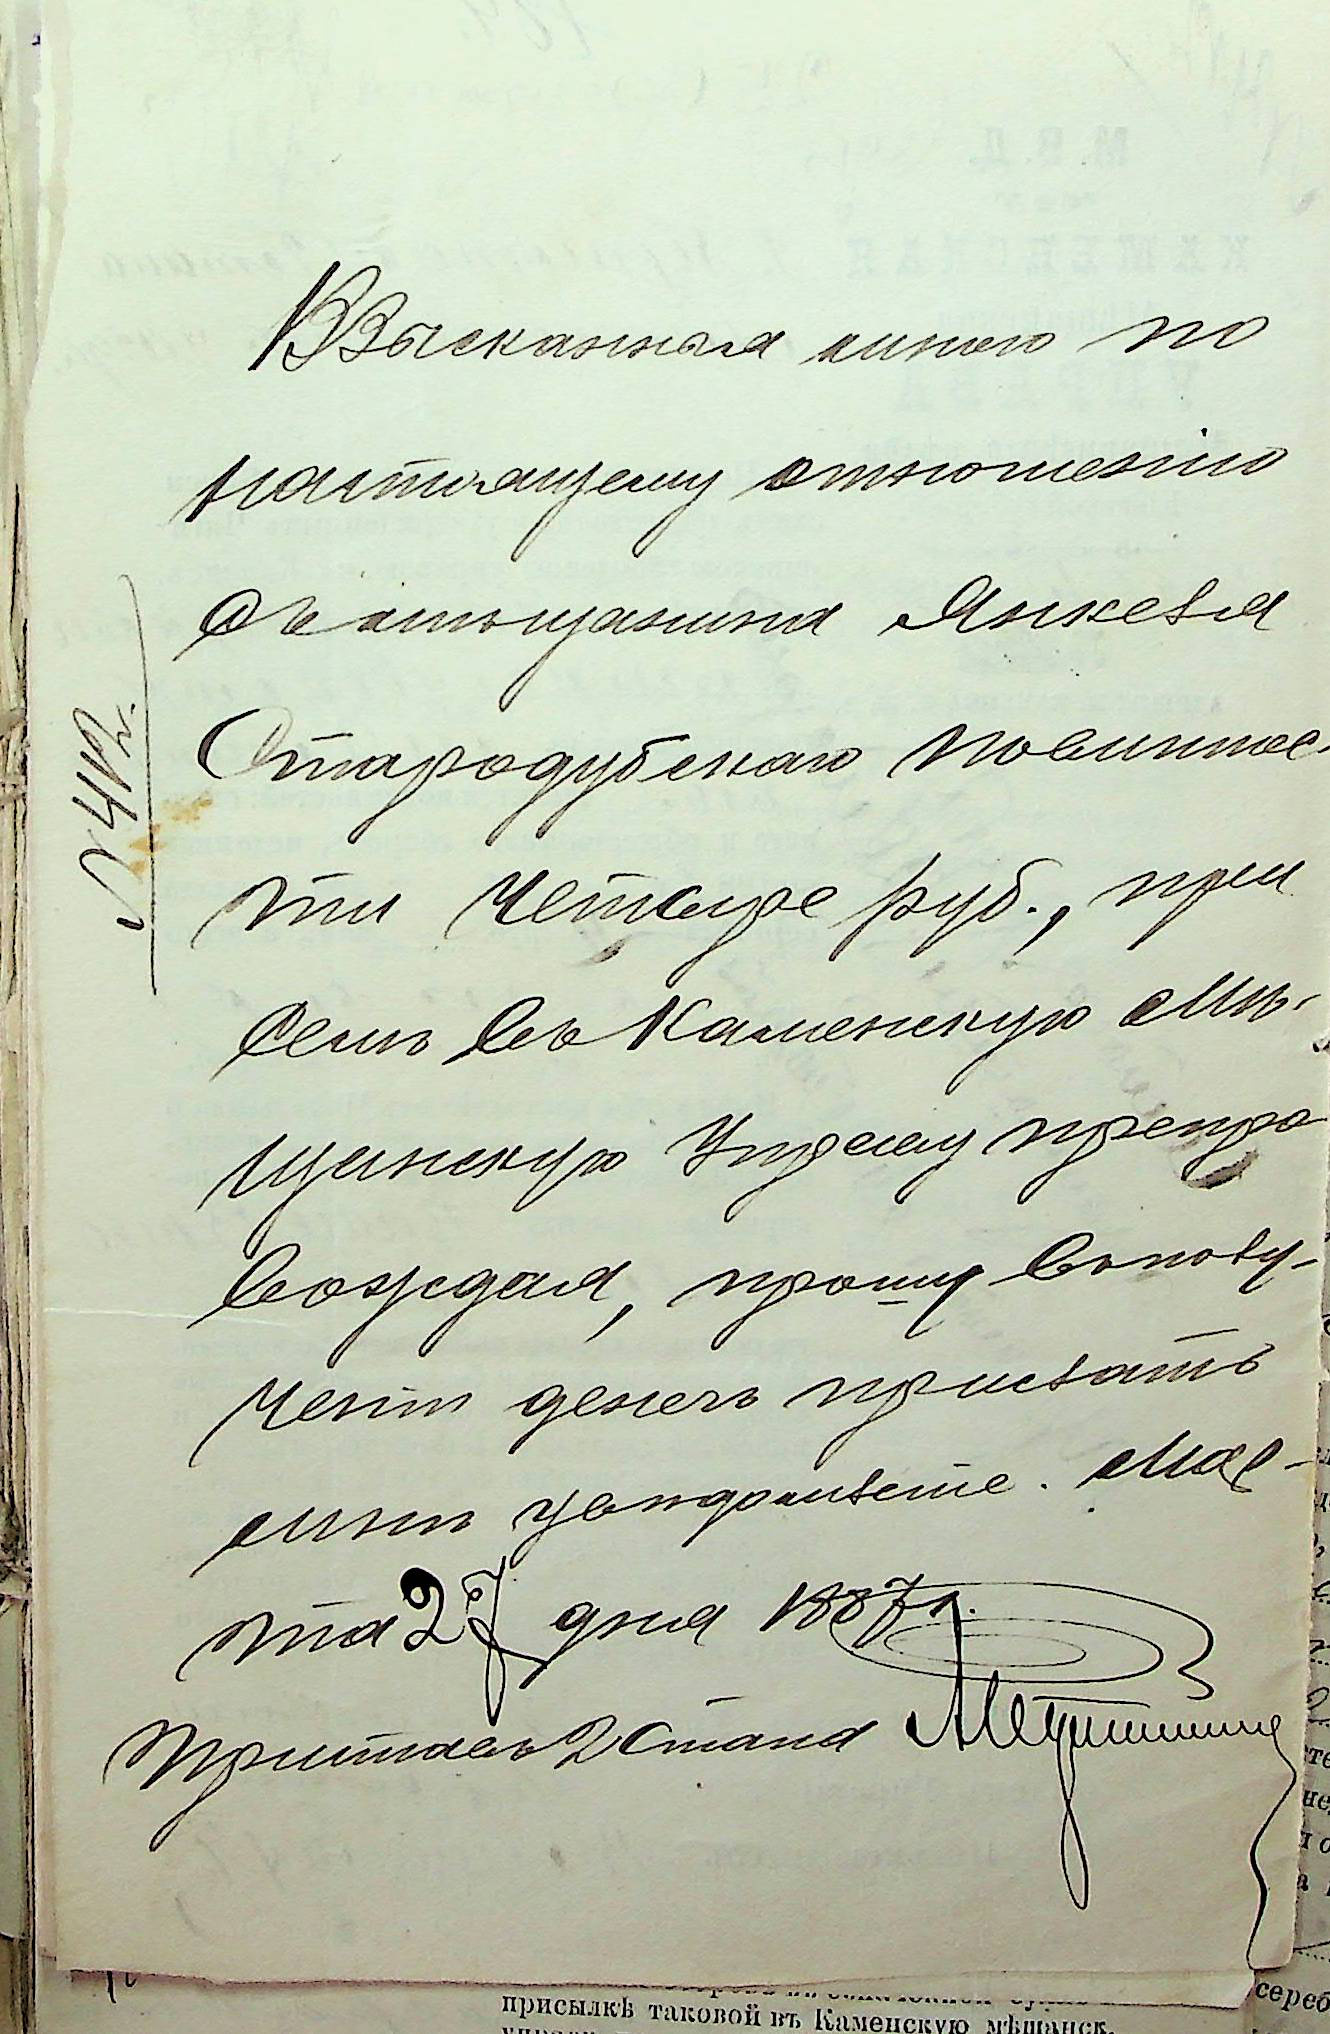 Взысканныя мною по
настоящему отношенію
съ мѣщанина Янкеля
Стародубскаго повиннос-
ти четыре руб., при
семъ въ Каменскую мѣ-
щанскую Управу препро
вождая, прошу въ полу-
ченіи денегъ прислать
мнѣ увѣдомленіе. Мар-
та 27 дня 1887 г.
Приставъ 2 стана
№ 412.
присылкѣ таковой въ Каменскую мѣщанск.
сереб